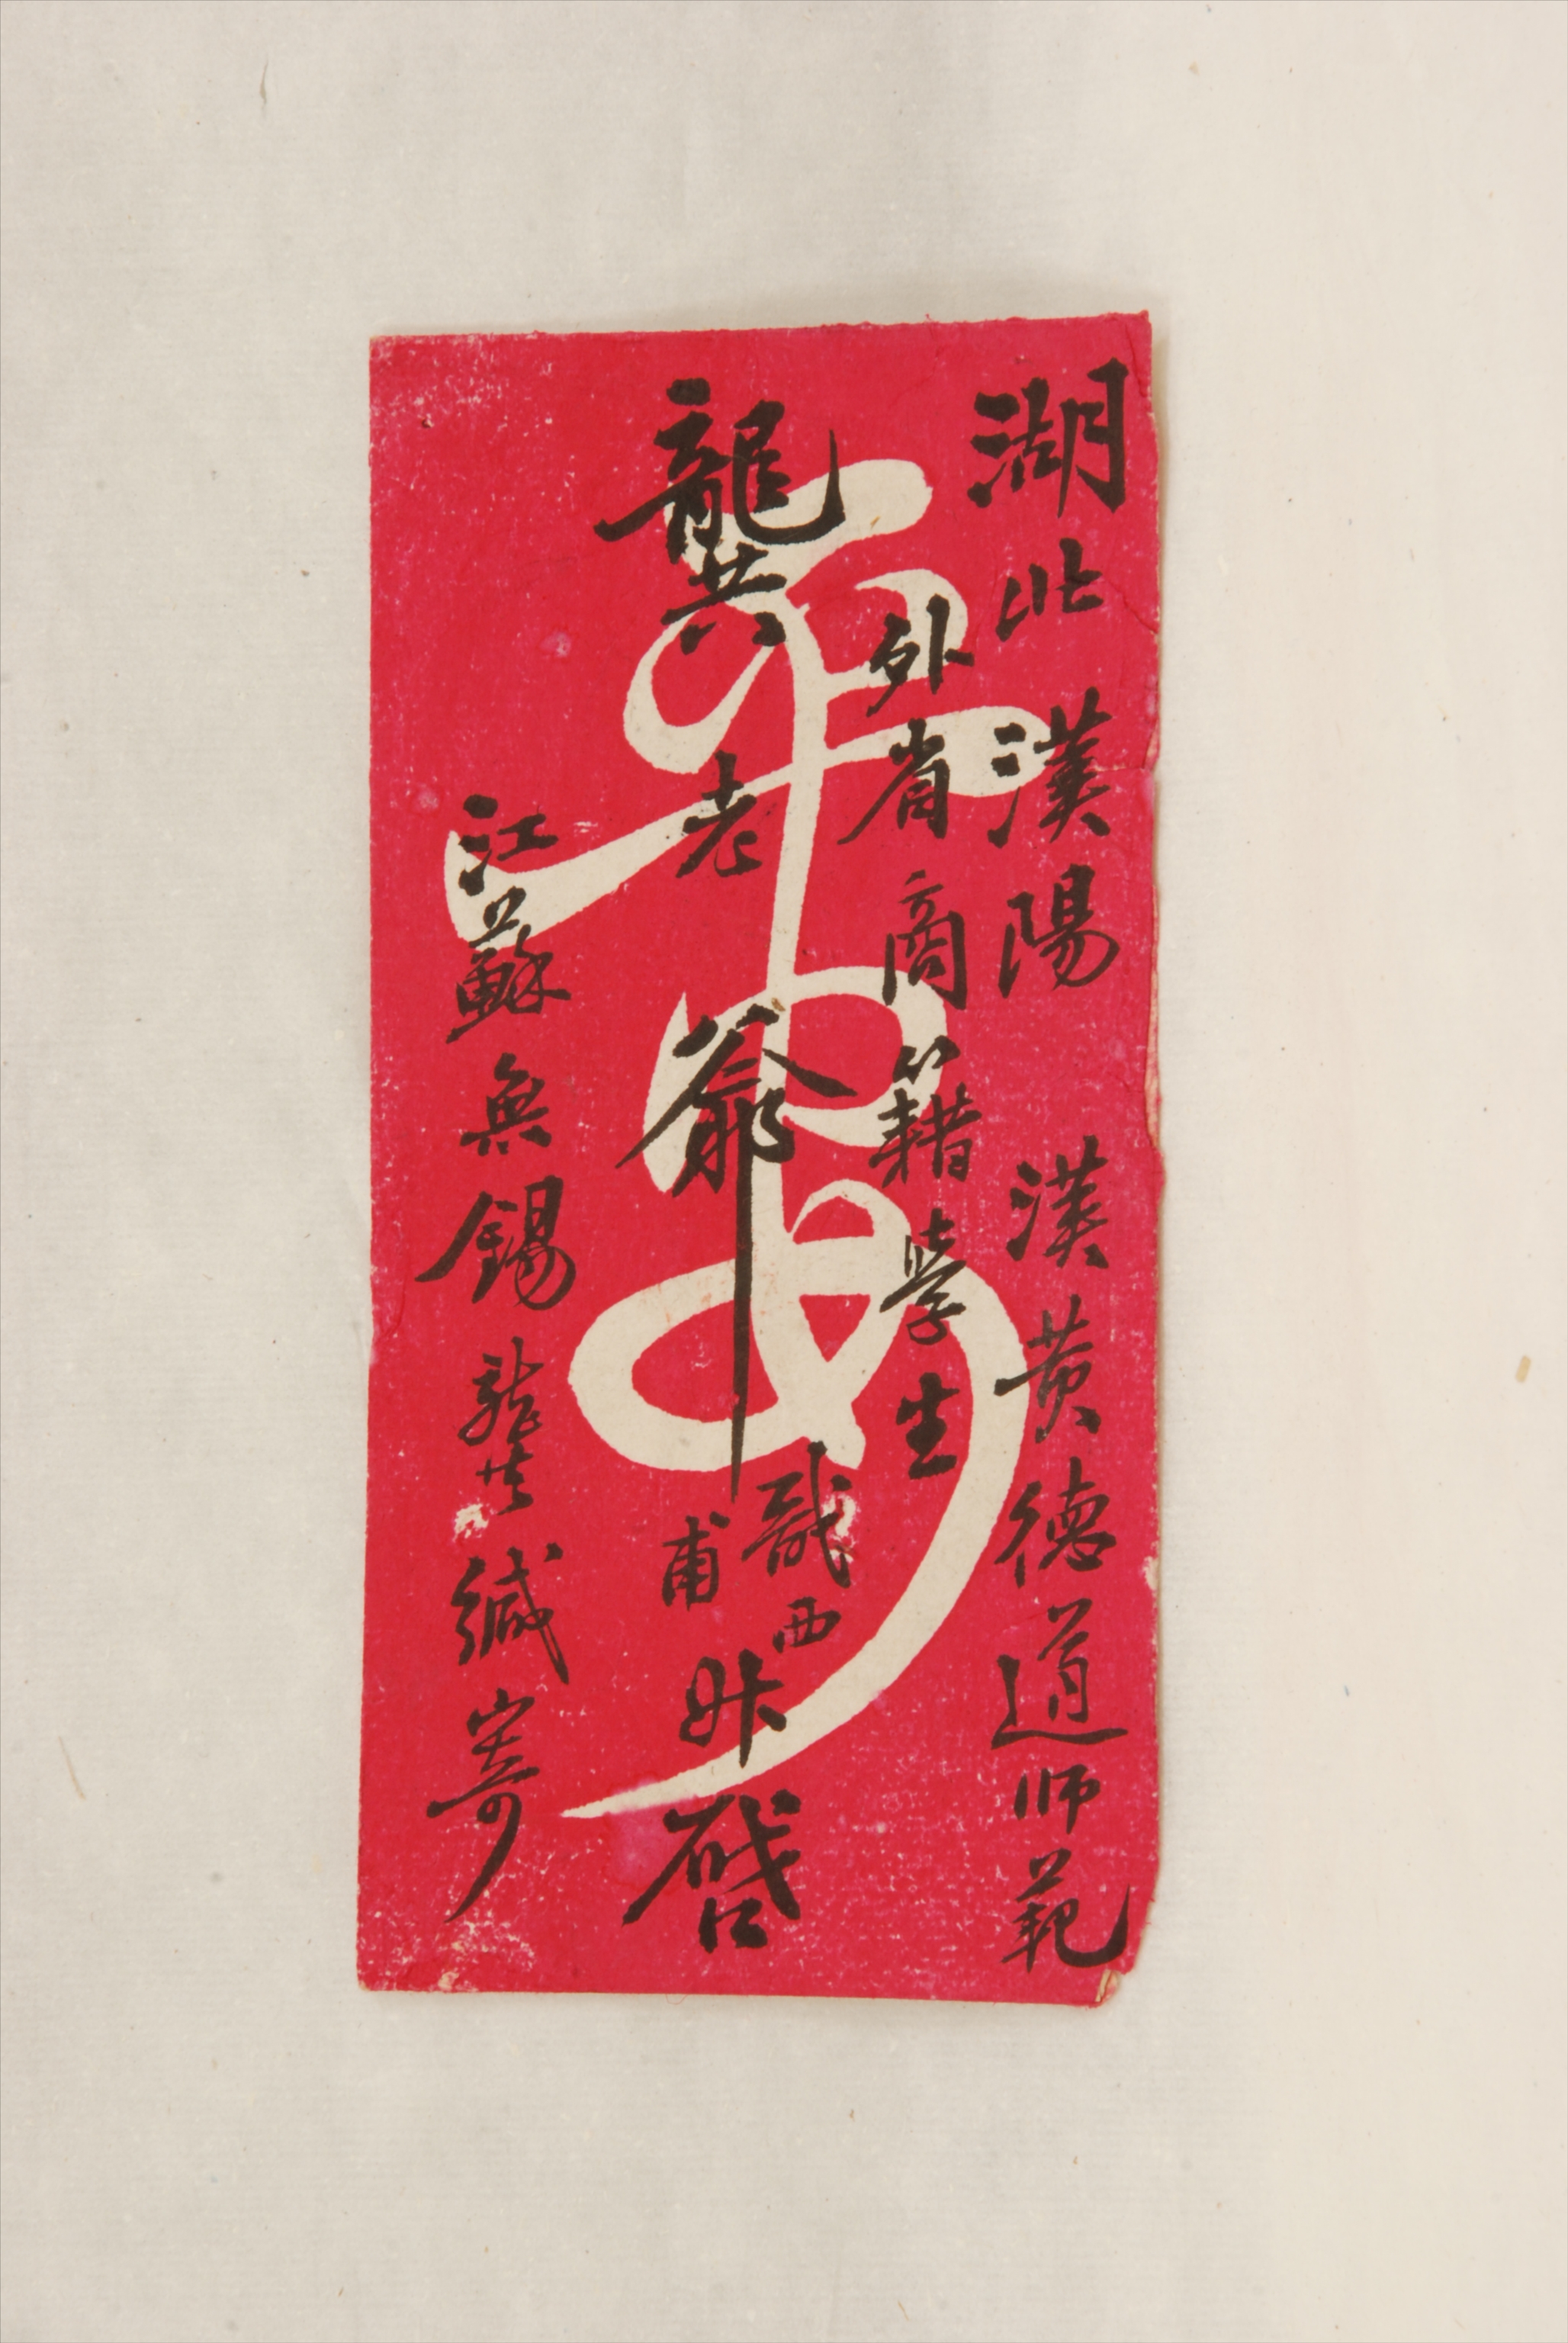 湖北漢陽 漢黃德道師範
外省商籍學生
龔老爺
西
甫
啟
江蘇無錫龔緘寄